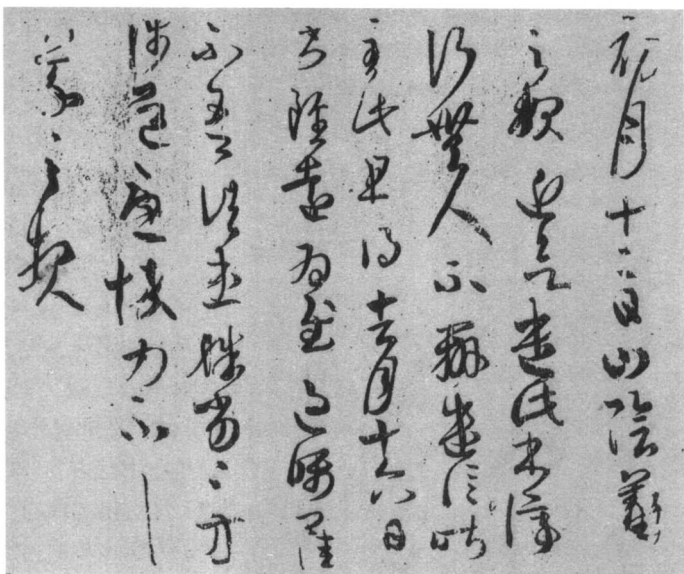 初月十二日山陰羲
之報近欲遣此書停
行無人不辦遣信昨
至此且得去月十六日
書雖遠為慰過囑卿佳
不吾諸患殊劣々方
涉道憂悴力不具
羲之報